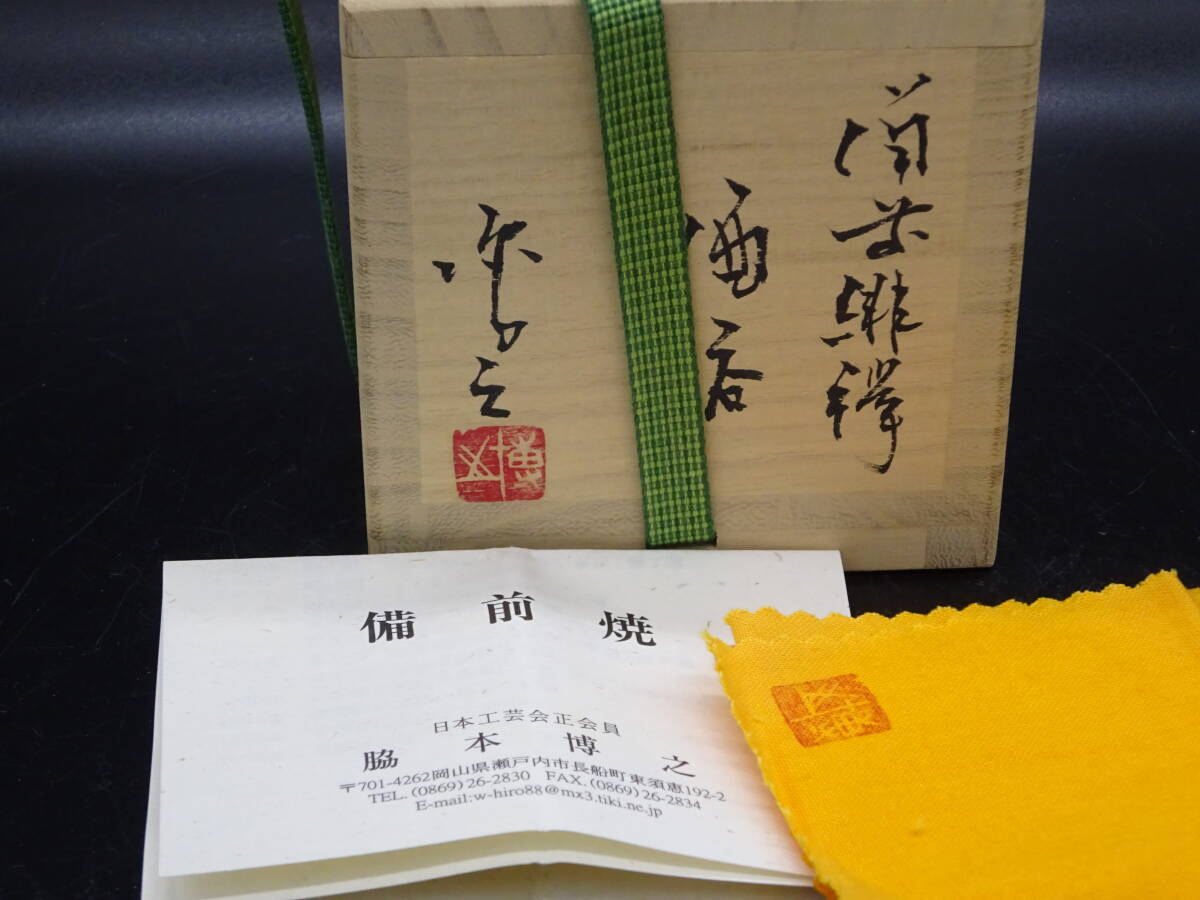 備前緋襷
酒呑
博之
博之
備前焼
日本工芸会正会員
脇本博之
〒701-4262岡山県瀬戸内市長船町東須恵192-2
TEL.(0869)26-2830 FAX.(0869)26-2834
E-mail:w-hiro88@mx3.tiki.ne.jp